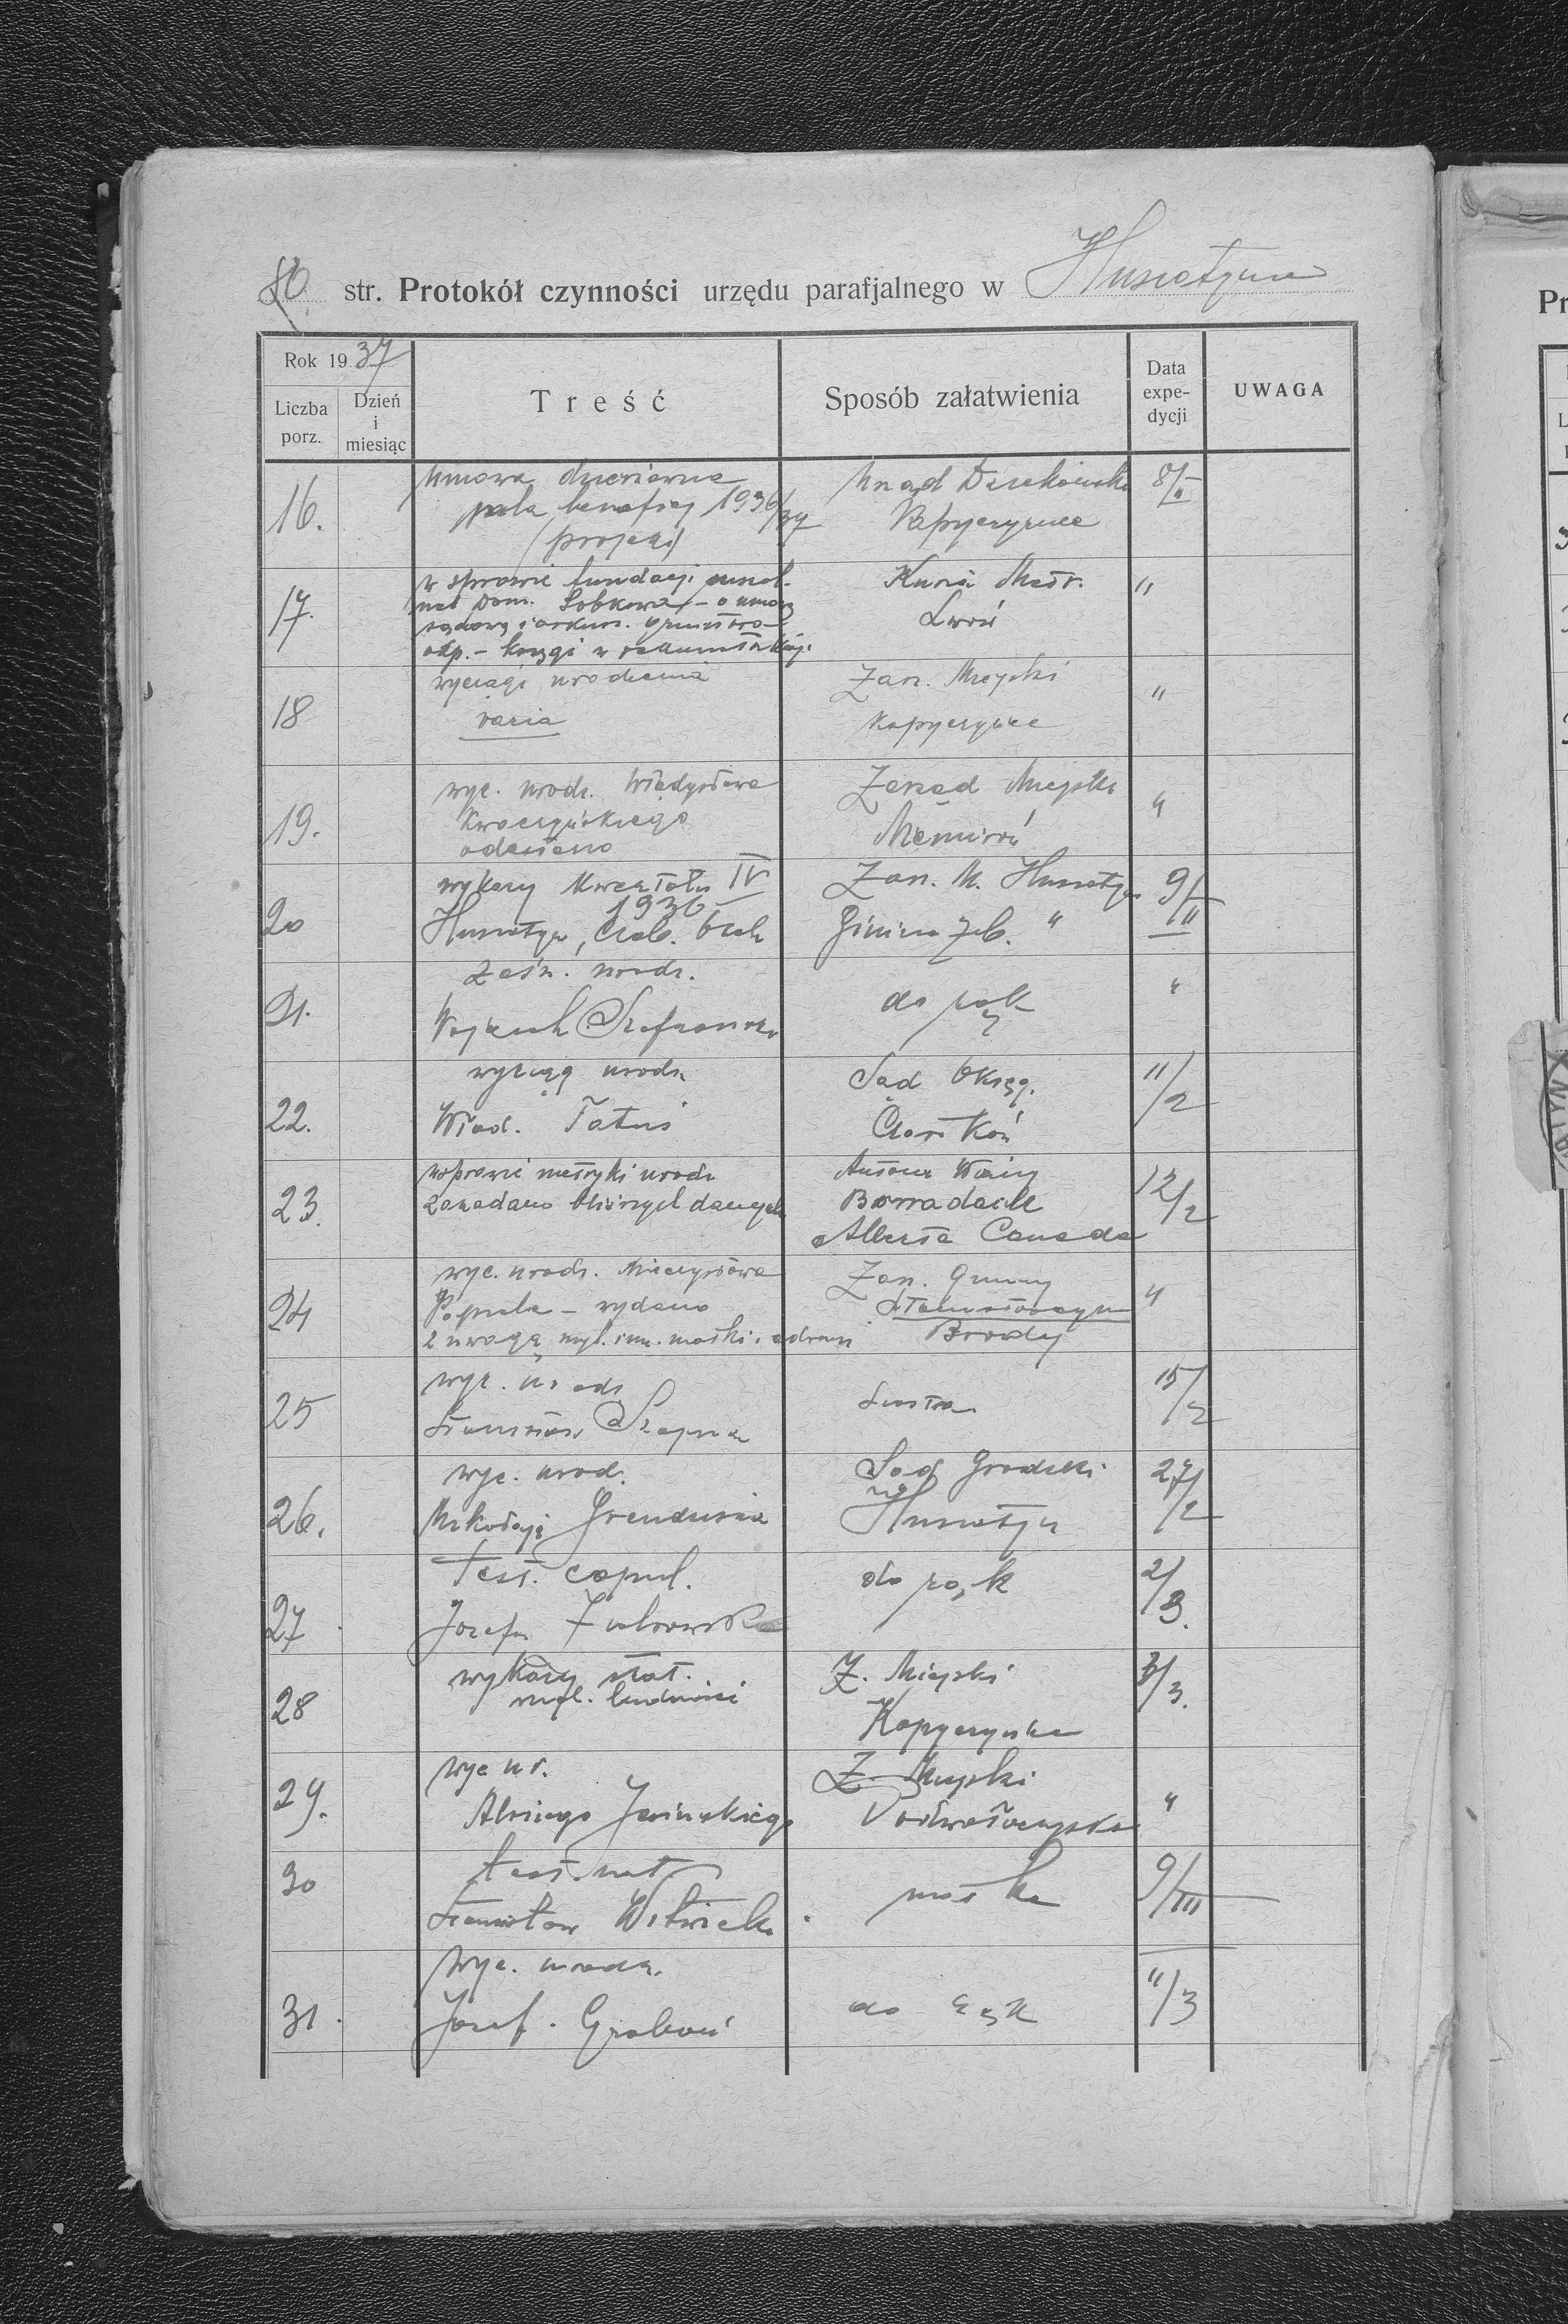 80 str. Protokół czynności urzędu parafjalnego w Husiatynie
Rok 1937
Liczba porz.
Dzień i miesiąc
Treść
Sposób załatwienia
Data expe-dycji
UWAGA
16.
umowa dzierżawna
pola benefic. 1936/37
(projekt)
Urząd Dziekański
Kopyczyńce
8/II
17.
w sprawie fundacji
Dom. Sobkowa – o umowę
Kuria Metr.
Lwów
"
18
wyciągi urodzenia
varia
Zarz. Miejski
Kopyczyńce
"
19.
wyc. urodz. Władysława
Kwaczyńskiego
odesłano
Zarząd Miejski
Niemirów
"
20
wykazy kwartału IV
1936
Husiatyn, Czab. Bech
Zarz. M. Husiatyn
Gmina Zb. "
9/II
21.
zaśw. urodz.
Wojciech Szafranowicz
do rąk
"
22.
wyciąg urodz.
Wład. Tatuś
Sąd Okręg.
Czortków
11/2
23.
w sprawie metryki urodz.
zażądano bliższych danych
Borradaile
Alberta Canada
12/2
24
wyc. urodz. Mieczysława
Popiela – wydano
z uwagą myl. im. matki
Zarz. Gminy
Stanisławczyk
Brody
"
25
wyc. urodz.
Stanisław Szapua
siostra
15/2
26.
wyc. urod.
Mikołaja Grendusia
Sąd Grodzki
Husiatyn
27/2
27
Test. copul.
Józefa Żubrowska
do rąk
2/3.
28
wykazy stat.
ludności
Z. Miejski
Kopyczyńce
3/3.
29.
wyc ur.
Alojzego Jasińskiego
Z. Miejski
Podwołoczyska
"
30
test. nat.
Stanisław Witwicki
matka
9/III
31.
wyc. urodz.
Józef. Graboń
do rąk
11/3
Pr